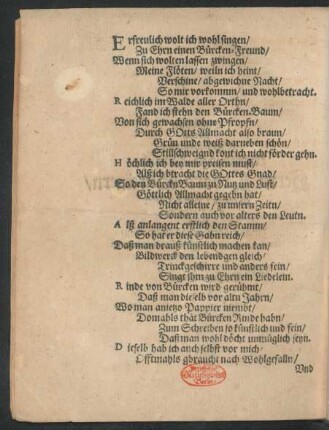 Erfreulich wolt ich wohl singen/
Zu Ehrn einen Bürcken-Freund/
Wenn sich wolten lassen zwingen/
Meine Flöten/ weiln ich heint/
Verschine/ abgewichne Nacht/
So mir vorkommn/ und wohlbetracht.
Reichlich im Walde aller Orthn/
Fand ich stehn den Bürcken-Baum/
Von sich gewachsen ohne Pfropfn/
Durch GOtts Allmacht also braun/
Grün unde weiß darneben schön/
Stillschweignd kont ich nicht förder gehn.
Höchlich ich bey mir preisen must/
Alß ich btracht die GOttes Gnad/
So den Bürckn Baum zu Nutz und Lust/
Göttlich Allmacht gegebn hat/
Nicht alleine/ zu unsern Zeitn/
Sondern auch vor alters den Leutn.
Alß anlangent erstlich den Stamm/
So hat er diese Gabn reich/
Daß man drauß künstlich machen kan/
Bildwerck den lebendgen gleich/
Trinckgeschirre und anders fein/
Singt ihm zu Ehrn ein Liedelein.
Rinde von Bürcken wird gerühmt/
Daß man dieselb vor altn Jahrn/
Wo man anietzo Pappier nimbt/
Domahls thät Bürcken Rinde habn/
Zum Schreiben so künstlich und fein/
Daß man wohl döcht unmüglich seyn.
Dieselb hab ich auch selbst vor mich
Offtmahls gbraucht nach Wohlgefalln/
Und